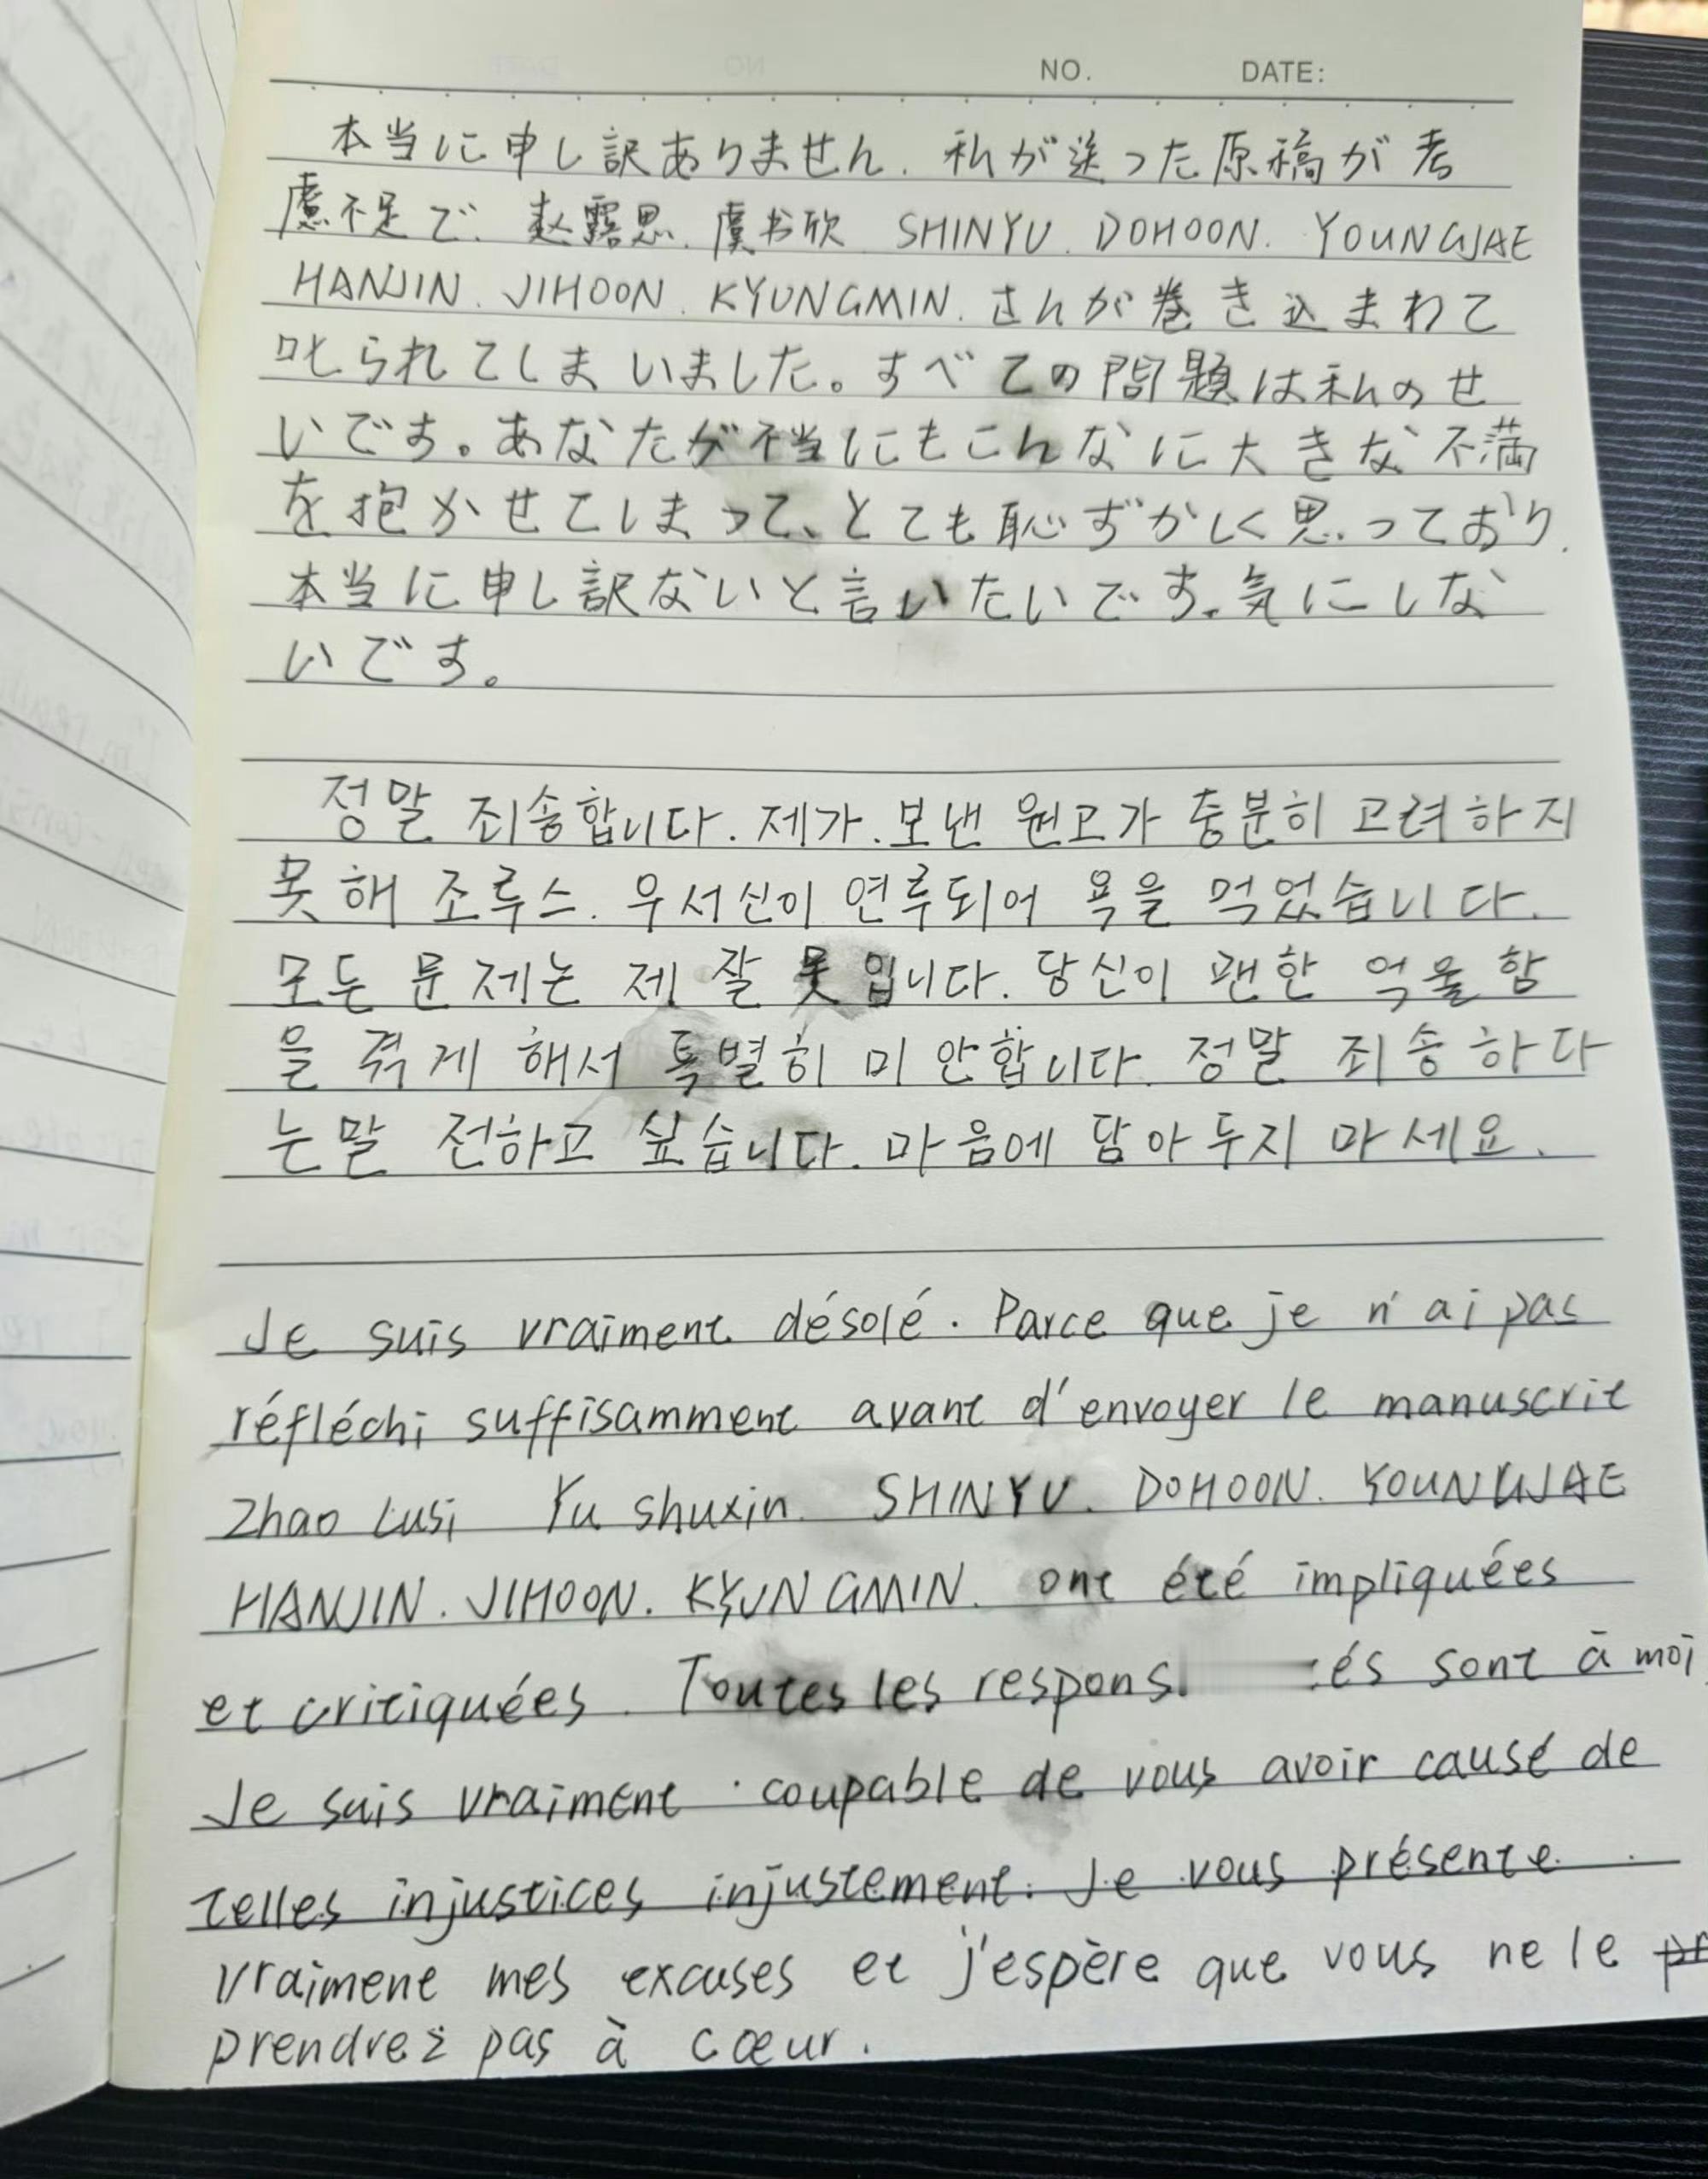 NO. DATE:
本当に申し訳ありません. 私が送った原稿が考
慮不足で. 赵露思. 虞书欣 SHINYU. DOHOON. YOUNGJAE
HANJIN. JIHOON. KYUNGMIN. さんが巻き込まわて
叱られてしまいました。すべての問題は私のせ
いです。あなたが不当にもこんなに大きな不満
を抱かせてしまって、とても恥ずかしく思っており.
本当に申し訳ないと言いたいです。気にしな
いです。
정말 죄송합니다. 제가. 보낸 원고가 충분히 고려하지
못해 조루스. 우서신이 연루되어 욕을 먹었습니다.
모든 문제는 제 잘못입니다. 당신이 괜한 억울함
을 겪게 해서 특별히 미안합니다. 정말 죄송하다
는말 전하고 싶습니다. 마음에 담아두지 마세요.
Je suis vraiment désolé. Parce que je n'ai pas
réfléchi suffisamment avant d'envoyer le manuscrit
Zhao Lusi Yu shuxin. SHINYU. DOHOON. YOUNGJAE
HANJIN. JIHOON. KYUNGMIN. ont été impliquées
et critiquées. Toutes les respons és sont à moi
Je suis vraiment coupable de vous avoir causé de
telles injustices injustement. Je vous présente
vraiment mes excuses et j'espère que vous ne le
prendrez pas à cœur.